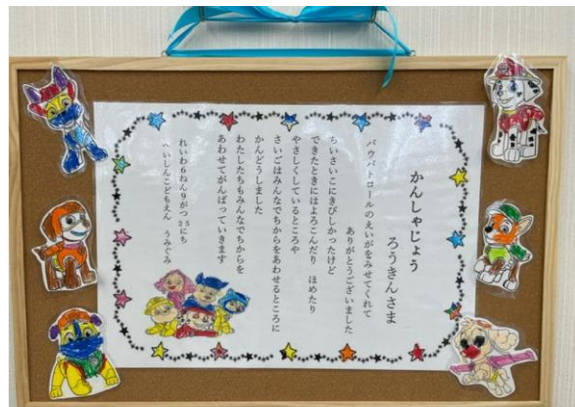 かんしゃじょう
ろうきんさま
パウパトロールのえいがをみせてくれて
ありがとうございました
ちいさいこにきびしかったけど
できたときにはよろこんだり　ほめたり
やさしくしているところや
さいごはみんなでちからをあわせるところに
かんどうしました
わたしたちもみんなでちからを
あわせてがんばっていきます
れいわ6ねん9がつ25にち
へいしんこどもえん　うみぐみ